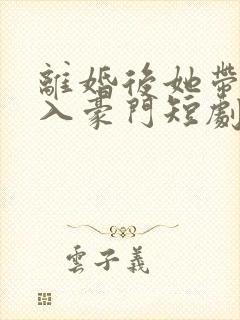 離婚後她帶
入豪門短劇
雲子義